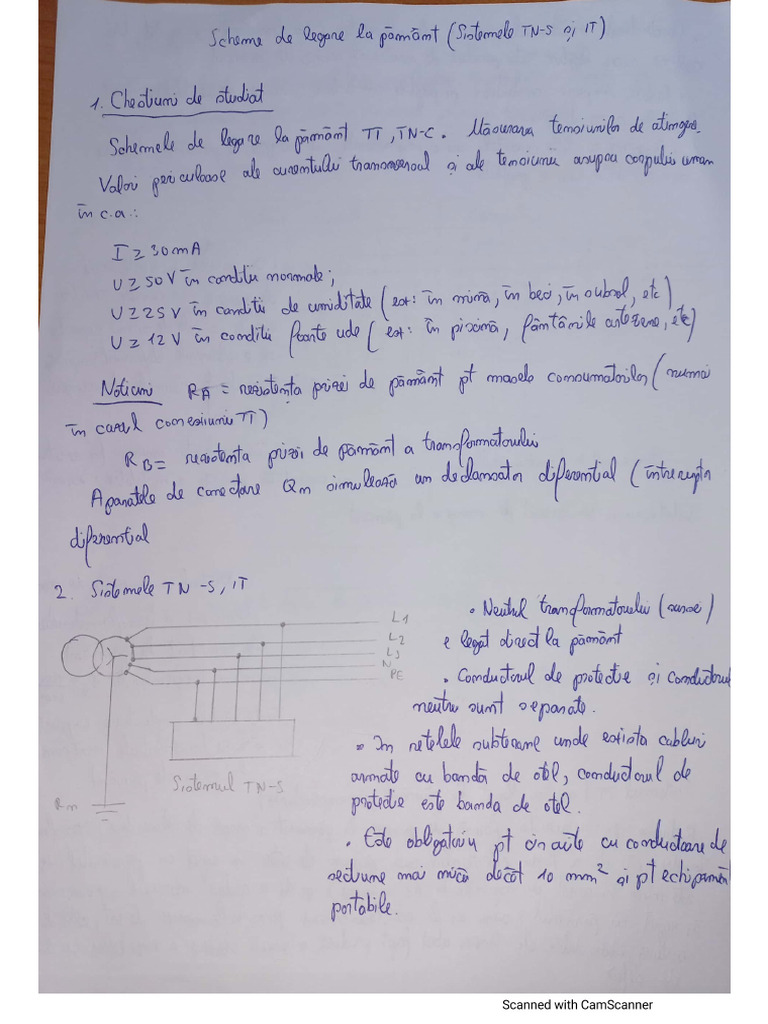 Scheme de legare la pământ (Sistemele TN-S și IT)
1. Chestiuni de studiat
Schemele de legare la pământ TT, TN-C. Măsurarea tensiunilor de atingere.
Valori periculoase ale curentului transversal și ale tensiunii asupra corpului uman
în c.a.:
I ≥ 30 mA
U ≥ 50 V în condiții normale;
U ≥ 25 V în condiții de umiditate (ex: în mină, în beci, în subsol, etc)
U ≥ 12 V în condiții foarte ude (ex: în piscină, fântânile arteziene, etc)
Noțiuni RA = rezistența prizei de pământ pt masele consumatorilor (numai
în cazul conexiunii TT)
RB = rezistența prizei de pământ a transformatorului
Aparatele de conectare Qn simulează un declanșator diferențial (întrerupător
diferențial
2. Sistemele TN-S, IT
L1
L2
L3
N
PE
Rn
Sistemul TN-S
• Neutrul transformatorului (sursei)
e legat direct la pământ
• Conductorul de protecție și conductorul
neutru sunt separate.
• În rețelele subterane unde există cabluri
armate cu bandă de oțel, conductorul de
protecție este banda de oțel.
• Este obligatoriu pt circuite cu conductoare de
secțiune mai mică decât 10 mm² și pt echipament
portabile.
Scanned with CamScanner